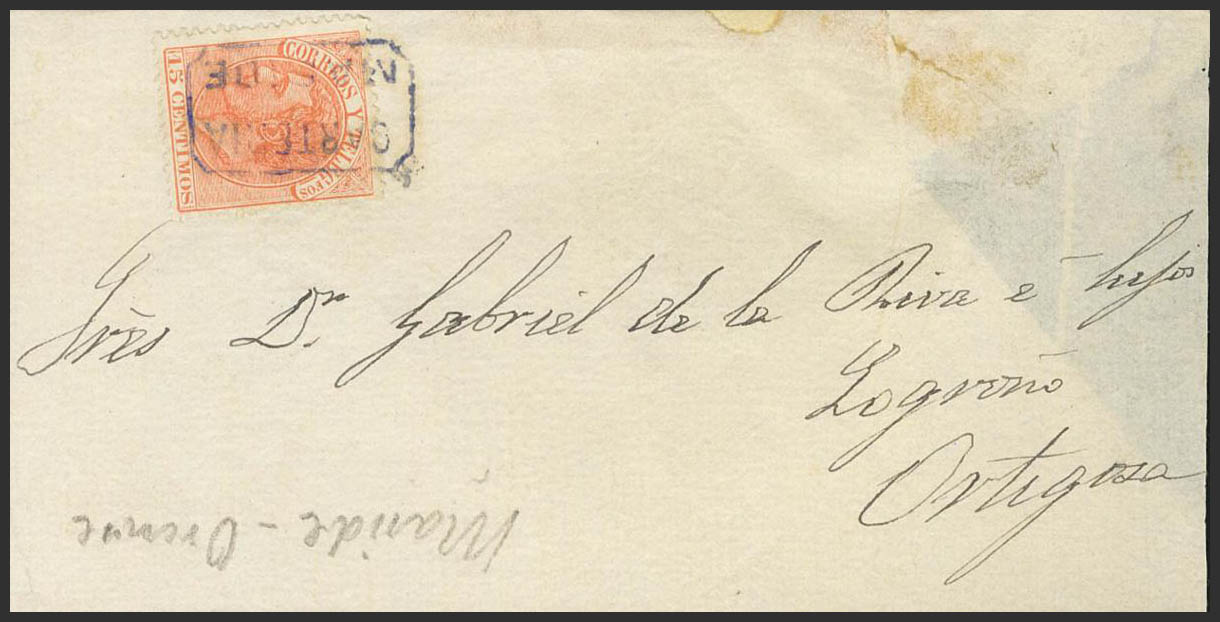 CORREOS Y TELEGFOS
15 CENTIMOS
CARTERIA
Srès Dn Gabriel de la Riva é hijos
Logroño
Ortigosa
Maside - Orense